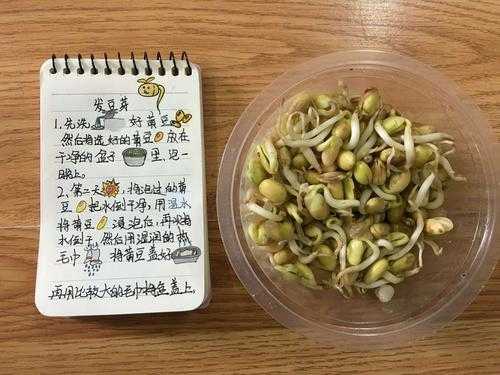 发豆芽
1.先洗 好黄豆
然后将选好的黄豆 放在
干净的盆子 里,泡一
晚上。
2、第二天 将泡过的黄
豆 把水倒干净,用温水
将黄豆 浸泡后,再将
水倒干,然后用湿润的
毛巾 将黄豆盖好
再用比较大的毛巾将盆盖上。